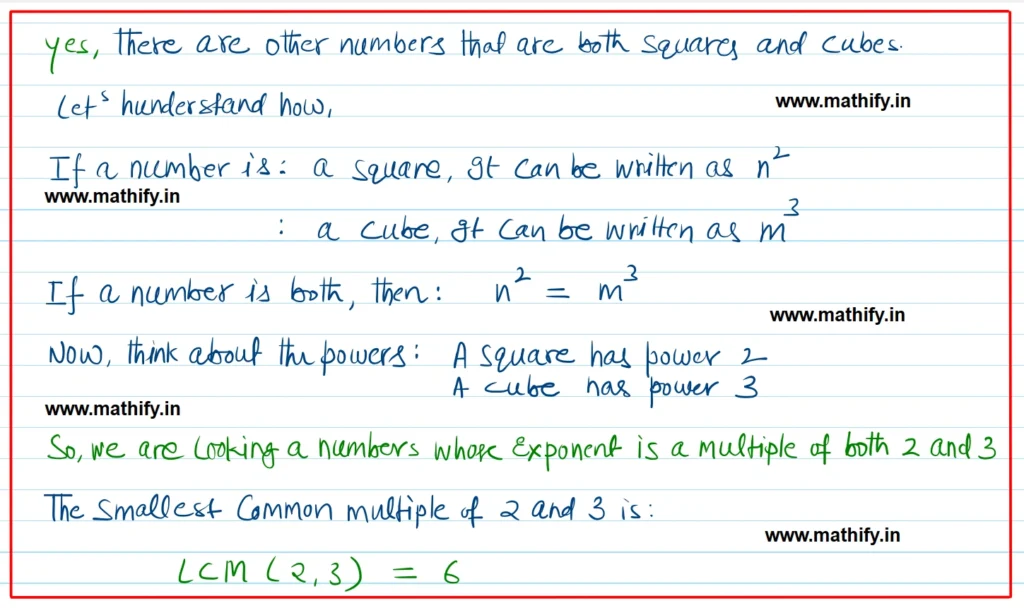 yes, there are other numbers that are both squares and cubes.
Let's hunderstand how,
www.mathify.in
If a number is: a square, It can be written as n²
www.mathify.in
: a cube, It can be written as m³
If a number is both, then: n² = m³
www.mathify.in
Now, think about the powers: A square has power 2
A cube has power 3
www.mathify.in
So, we are looking a numbers whose Exponent is a multiple of both 2 and 3
The smallest Common multiple of 2 and 3 is:
www.mathify.in
LCM (2,3) = 6